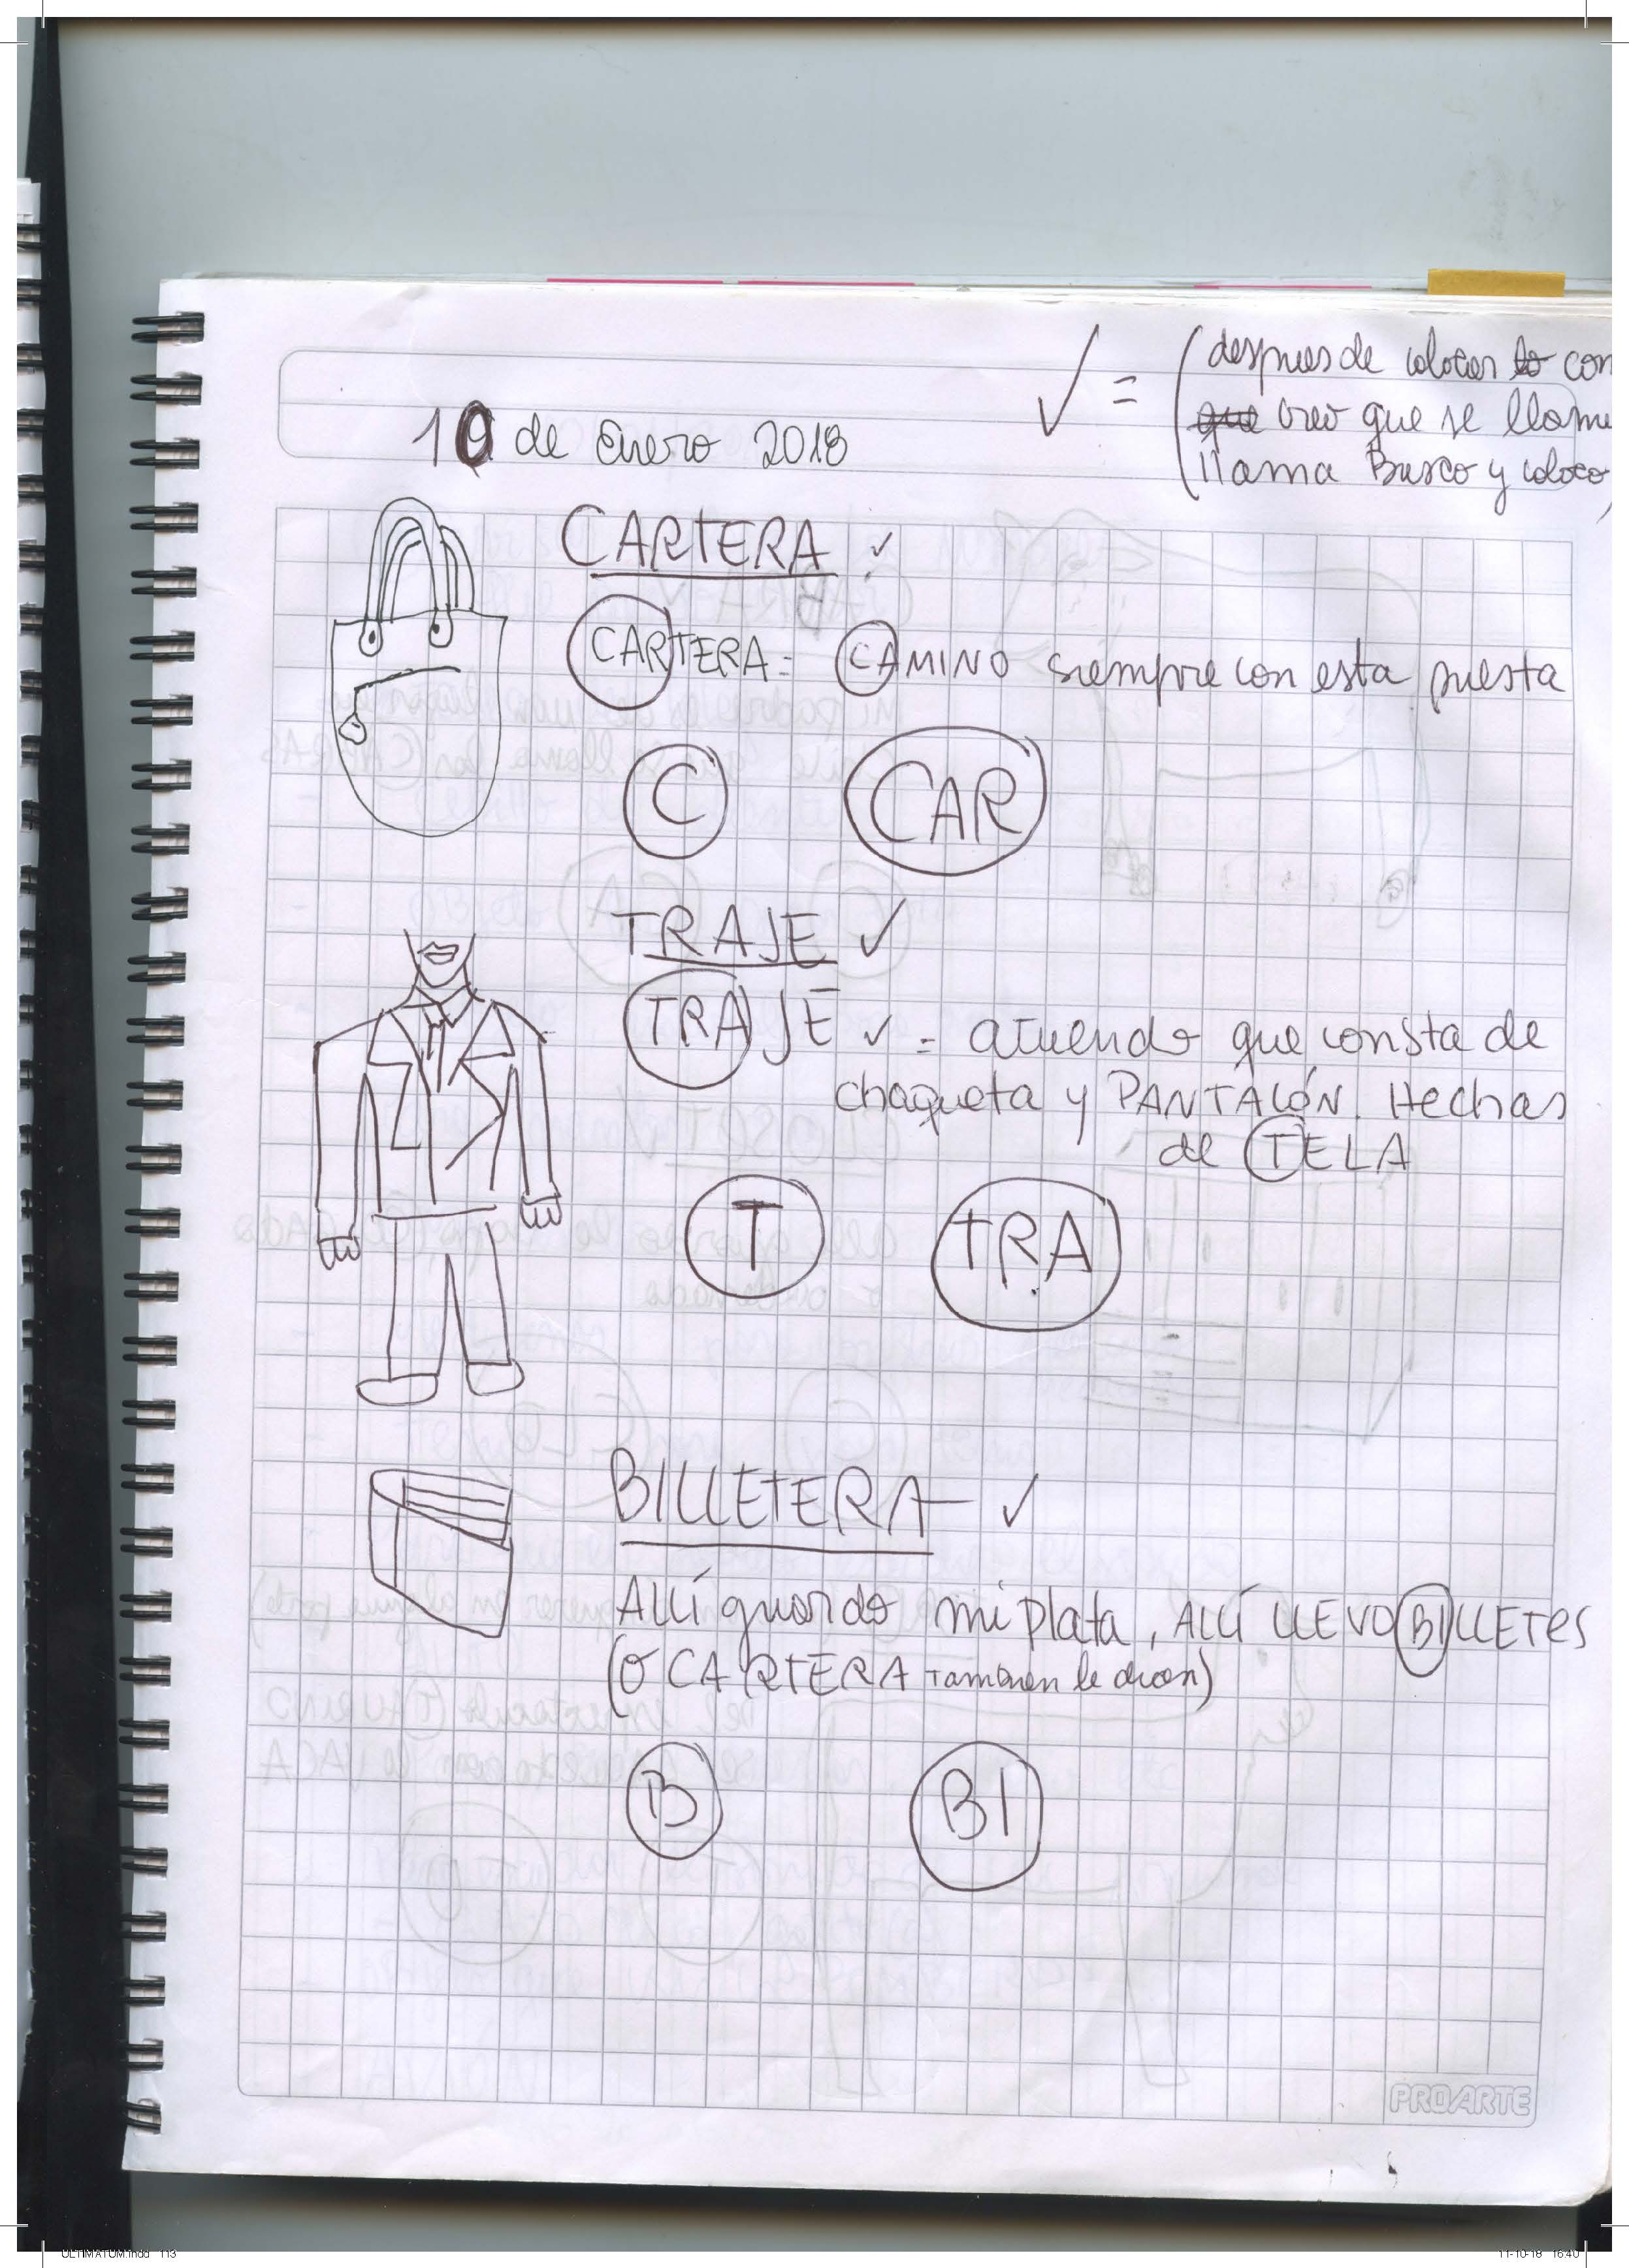 ✓ = (despues de colocar lo con
que creo que se llame
llama Busco y coloco)
10 de enero 2018
CARTERA ✓
CARTERA = CAMINO siempre con esta puesta
C CAR
TRAJE ✓
TRAJE ✓ = atuendo que consta de
chaqueta y PANTALÓN. Hechas
de TELA
T TRA
BILLETERA ✓
ALLÍ guardo mi plata, ALLÍ LLEVO BILLETES
(O CARTERA tambien le dicen)
B BI
PROARTE
ULTIMATUM.indd 113
11-10-18 16:40